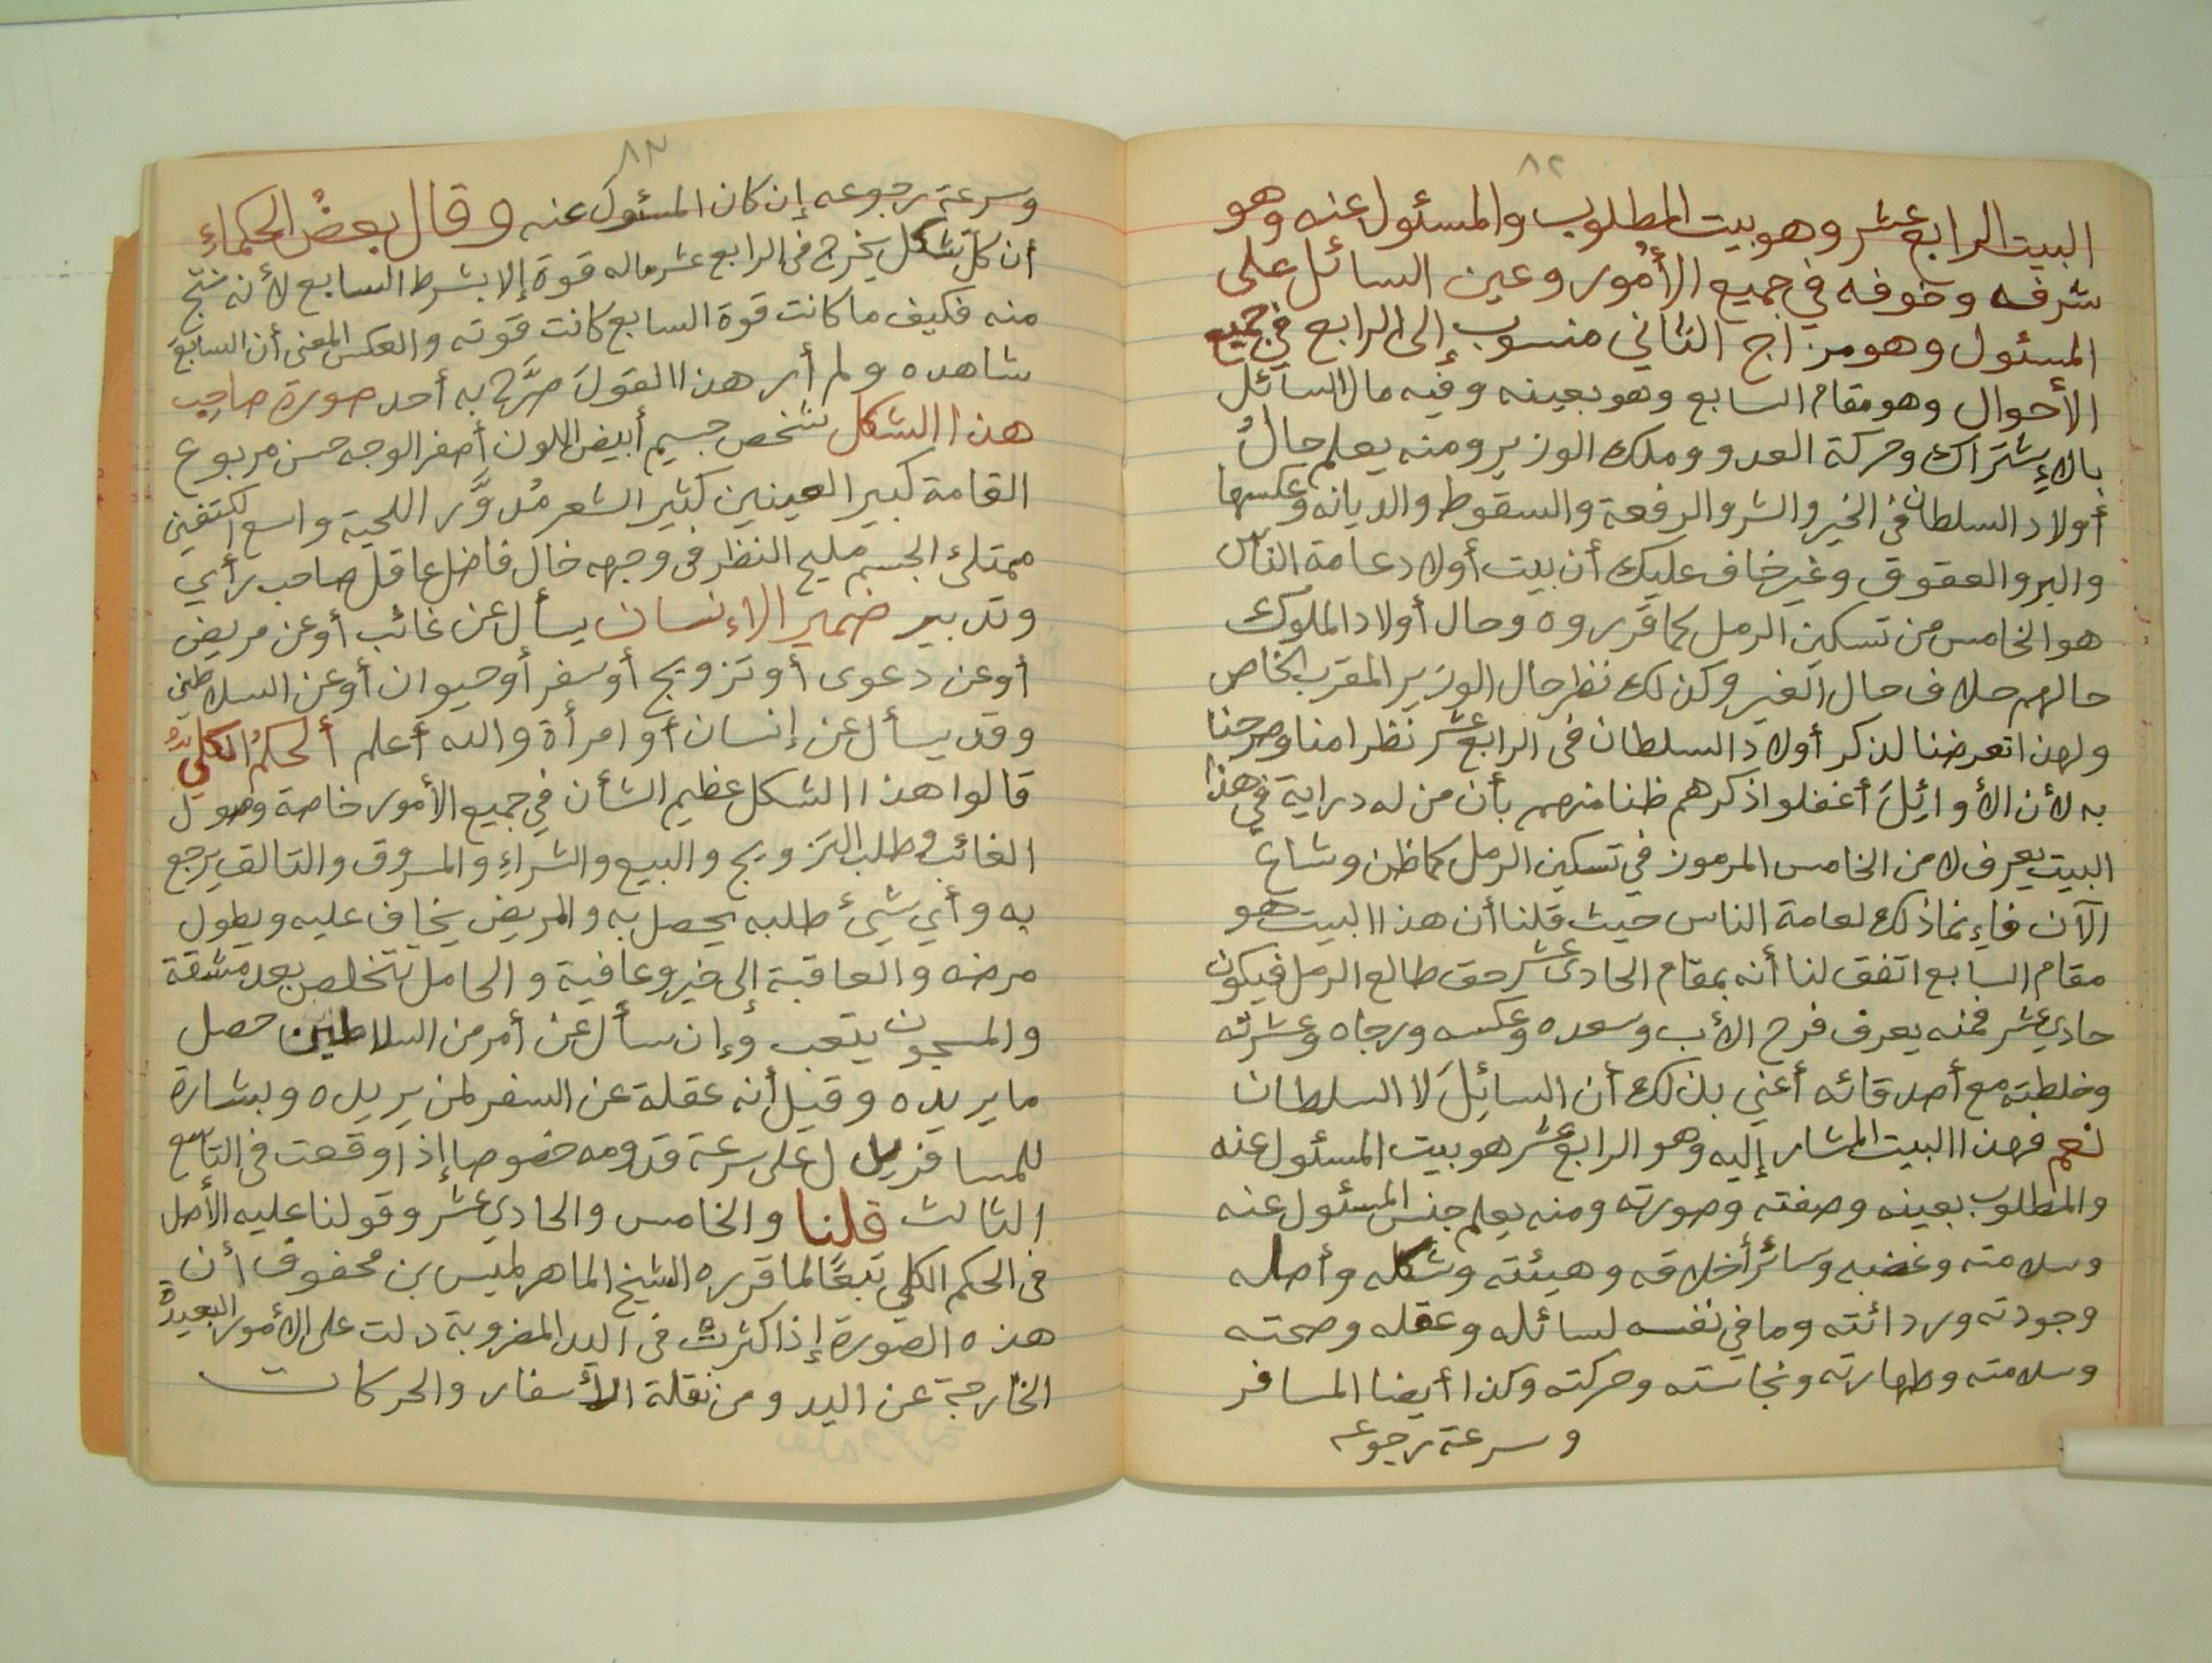 ٨٢
البيت الرابع عشر وهو بيت المطلوب والمسئول عنه وهو
شرفه وخوفه في جميع الأمور وعين السائل على
المسئول وهو مزاج الثاني منسوب إلى الرابع في جميع
الأحوال وهو مقام السابع وهو بعينه وفيه مال السائل
بالإشتراك وحركة العدو وملك الوزير ومنه يعلم حالُ
أولاد السلطان في الخير والشر والرفعة والسقوط والديانه وعكسها
والبر والعقوق وغير خاف عليك أن بيت أولاد عامة الناس
هو الخامس من تسكين الرمل كما قرروه وحال أولاد الملوك
حالهم خلاف حال الغير وكذلك نظر حال الوزير المقرب الخاص
ولهذا تعرضنا لذكر أولاد السلطان في الرابع عشر نظرا منا وصرحنا
به لأن الأوائِلَ أغفلوا ذكرهم ظنا منهم بأن من له دراية في هذا
البيت يعرف لا من الخامس المرموز في تسكين الرمل كما ظن وشاع
الآن فإنما ذلك لعامة الناس حيث قلنا أن هذا البيت هو
مقام السابع اتفق لنا أنه بمقام الحادي عشر حق طالع الرمل فيكون
حادي عشر فمنه يعرف فرح الأب وسعده وعكسه ورجاه وعشرته
وخلطته مع أصدقائه أعني بذلك أن السائِلَ لا السلطان
نعم فهذا البيت المشار إليه وهو الرابع عشر هو بيت المسئول عنه
والمطلوب بعينه وصفته وصورته ومنه يعلم جنس المسئول عنه
وسلامته وغضبه وسائر أخلاقه وهيئته وشكله وأصله
وجودته وردائته وما في نفسه لسائله وعقله وصحته
وسلامته وطهارته ونجاسته وحركته وكذا أيضا المسافر
وسرعة رجوعه
٨٣
وسرعة رجوعه إن كان المسئولَ عنه وقال بعضُ الحكماءِ
أن كل شكل يخرج في الرابع عشر ماله قوة إلا بشرط السابع لأنه نتج
منه فكيف ما كانت قوة السابع كانت قوته والعكس المعنى أن السابعَ
شاهده ولم أر هذا القولَ صرَّح به أحد صورة صاحِب
هذا الشكل شخص جسيم أبيض اللون أصفر الوجه حسن مربوع
القامة كبير العينين كثير الشعر مُدوَّر اللحية واسع الكتفين
ممتلئ الجسم مليح النظر في وجهه خال فاضل عاقل صاحب رأي
وتدبير ضمير الإنسان يسأل عن غائب أو عن مريض
أو عن دعوى أو تزويج أو سفر أو حيوان أو عن السلاطين
وقد يسأل عن إنسان أو امرأة والله أعلم ألحكمُ الكليُّ
قالوا هذا الشكل عظيم الشأن في جميع الأمور خاصة وصول
الغائب وطلب التزويج والبيع والشراء والمسروق والتالف يرجع
به وأي شيئ طلبه يحصل به والمريض يخاف عليه ويطول
مرضه والعاقبة إلى خير وعافية والحامل تتخلص بعد مشقة
والمسجون يتعب وإن سأل عن أمر من السلاطين حصل
ما يريده وقيل أنه عقلة عن السفر لمن يريده وبشارة
للمسافر يدل على سرعة قدومه خصوصا إذا وقعت في التاسع
الثالث قلنا والخامس والحادي عشر وقولنا عليه الأصل
في الحكم الكلي تبعًا لما قرره الشيخ الماهر لميس بن محفوف أن
هذه الصورة إذا كثرت في اليد المضروبة دلت على الأمور البعيدة
الخارجة عن اليد ومن نقلة الأسفار والحركات